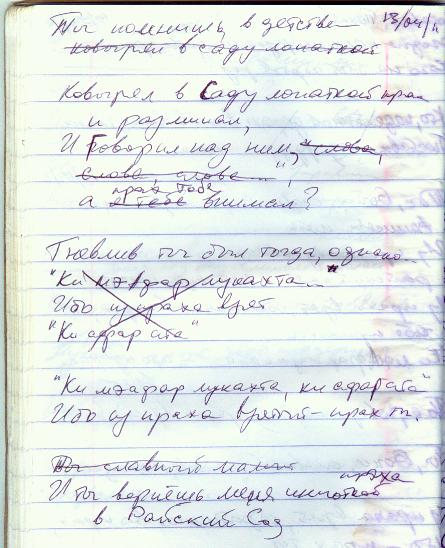 Ты помнишь, в детстве 13/04/11
ковырял в саду лопаткой
Ковырял в Саду лопаткой прах
и разминал,
И Говорил над ним, "слова,
слова, слова...",
прах тебе
а я тебе внимал?
Гневлив ты был тогда, однако...
"Ки мэафар лукахта...
Ибо из праха взят
"Ки афар ата"
"Ки мэафар лукахта, ки афар ата"
Ибо из праха взятый - прах ты.
Ты славный мальчик
праха
И ты вернёшь меня щепоткой
в Райский Сад